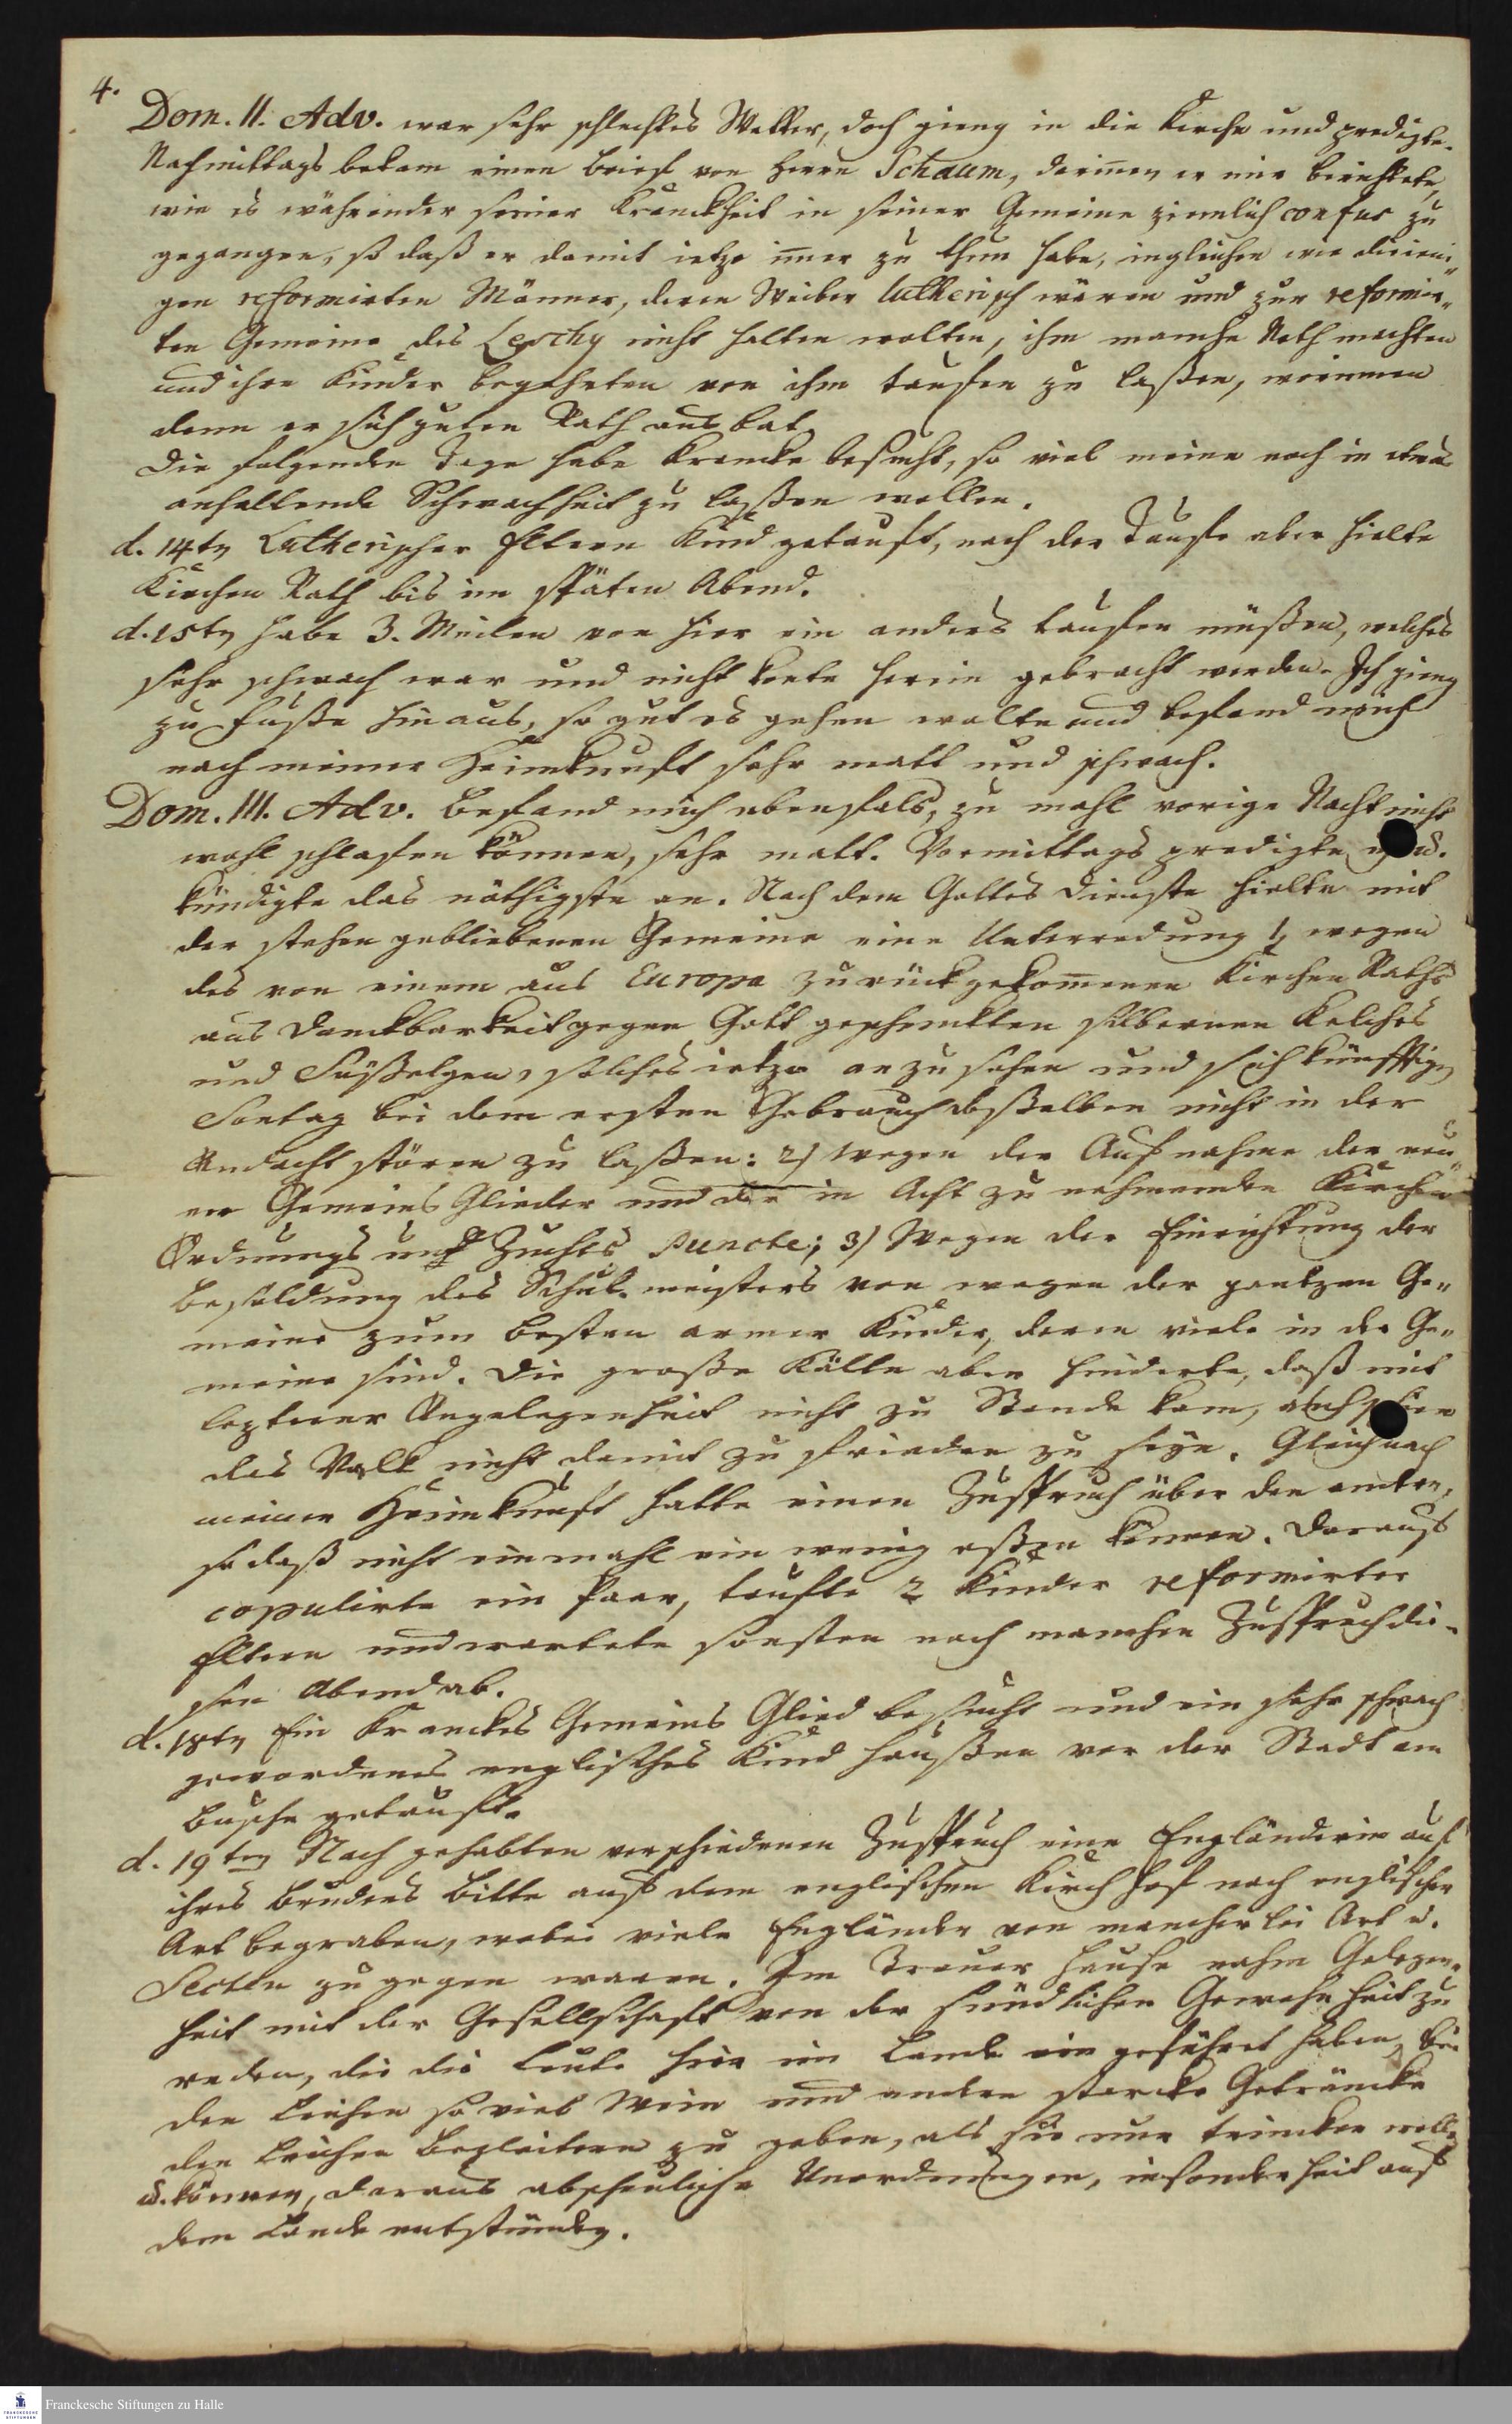 4.
Dom. II. Adv. war sehr schlechtes Wetter, doch gieng in die Kirche und predigte.
Nachmittags bekam einen Brief von Herrn Schaum, darinnen er mir berichtete,
wie es währender seiner Kranckheit in seiner Gemeine ziemlich confus zu
gegangen, so daß er damit ietzo im̅er zu thun habe, ingleichen wie dieieni„
gen reformirten Männer, deren Weiber lutherisch wären und zur reformir„
ten Gemeine des Leschy nicht halten wolten, ihm manche Noth machten
und ihre Kinder begehrten von ihm taufen zu laßen, worinnen
denn er sich guten Rath aus bat.
Die folgenden Tage habe Krancke besucht, so viel meine noch in etwas
anhaltende Schwachheit zu laßen wollen.
d. 14tn Lutherischer Eltern Kind getauft, nach der Taufe aber hielte
Kirchen Rath bis im späten Abend.
d. 15tn habe 3. Meilen von hier ein anders taufen müßen, welches
sehr schwach war und nicht konte herein gebracht werden. Ich gieng
zu Fuße hinaus, so gut es gehen wolte und befand mich
nach meiner Heimkunft sehr matt und schwach.
Dom. III. Adv. befand mich ebenfals, zu mahl vorige Nacht nicht
wohl schlafen können, sehr matt. Vormittags predigte u.
kündigte das nöthigste an. Nach dem Gottes Dienste hielte mit
der stehen gebliebenen Gemeine eine Unterredung 1) wegen
des von einem aus Europa zurück gekom̅enen Kirchen Raths
aus Danckbarkeit gegen Gott geschenckten silbernen Kelches
und solches ietzo anzusehen und sich künfftigen
Sontag bei dem ersten Gebrauch deßelben nicht in der
Andacht stören zu laßen: 2) Wegen der Aufnahme der neu„
en Gemeins Glieder und der in Acht zu nehmenden Kirchen
Ordnungs und Zuchts Puncte; 3) Wegen der Einrichtung der
Besoldung des Schulmeisters von wegen der gantzen Ge„
meine zum Besten armer Kinder, deren viele in der Ge„
meine sind. Die große Kälte aber hinderte, daß mit
lezterer Angelegenheit nicht zu Stande kam, auch schien
das Volk nicht damit zu frieden zu seyn. Gleich nach
meiner Heimkunft hatte einen Zuspruch über den andern,
so daß nicht einmahl ein wenig eßen können. Darauf
copulirte ein Paar, taufte 2 Kinder reformirter
Eltern und wartete sonsten noch manchen Zuspruch die„
sen Abend ab.
d. 18tn Ein Kranckes Gemeins Glied besucht und ein sehr schwach
gewordenes englisches Kind haußen vor der Stadt am
Busche getauft.
d. 19ten Nach gehabten verschiedenen Zuspruch eine Engländerin auf
ihres Bruders Bitte auf dem englischen Kirch Hof nach englischer
Art begraben, wobei viele Engländer von mancherlei Art u.
Secten zu gegen waren. Im Trauer Hause nahm Gelegen„
heit mit der Gesellschaft von der sündlichen Gewohnheit zu
reden, die die Leute hier im Lande ein geführet haben, bei
den Leichen so viel Wein und andere starcke Geträncke
den Leichen Begleitern zu geben, als sie nur trincken wollen
u. können, daraus abscheuliche Unordnungen, insonderheit auf
dem Lande entstünden.
Franckesche Stiftungen zu Halle